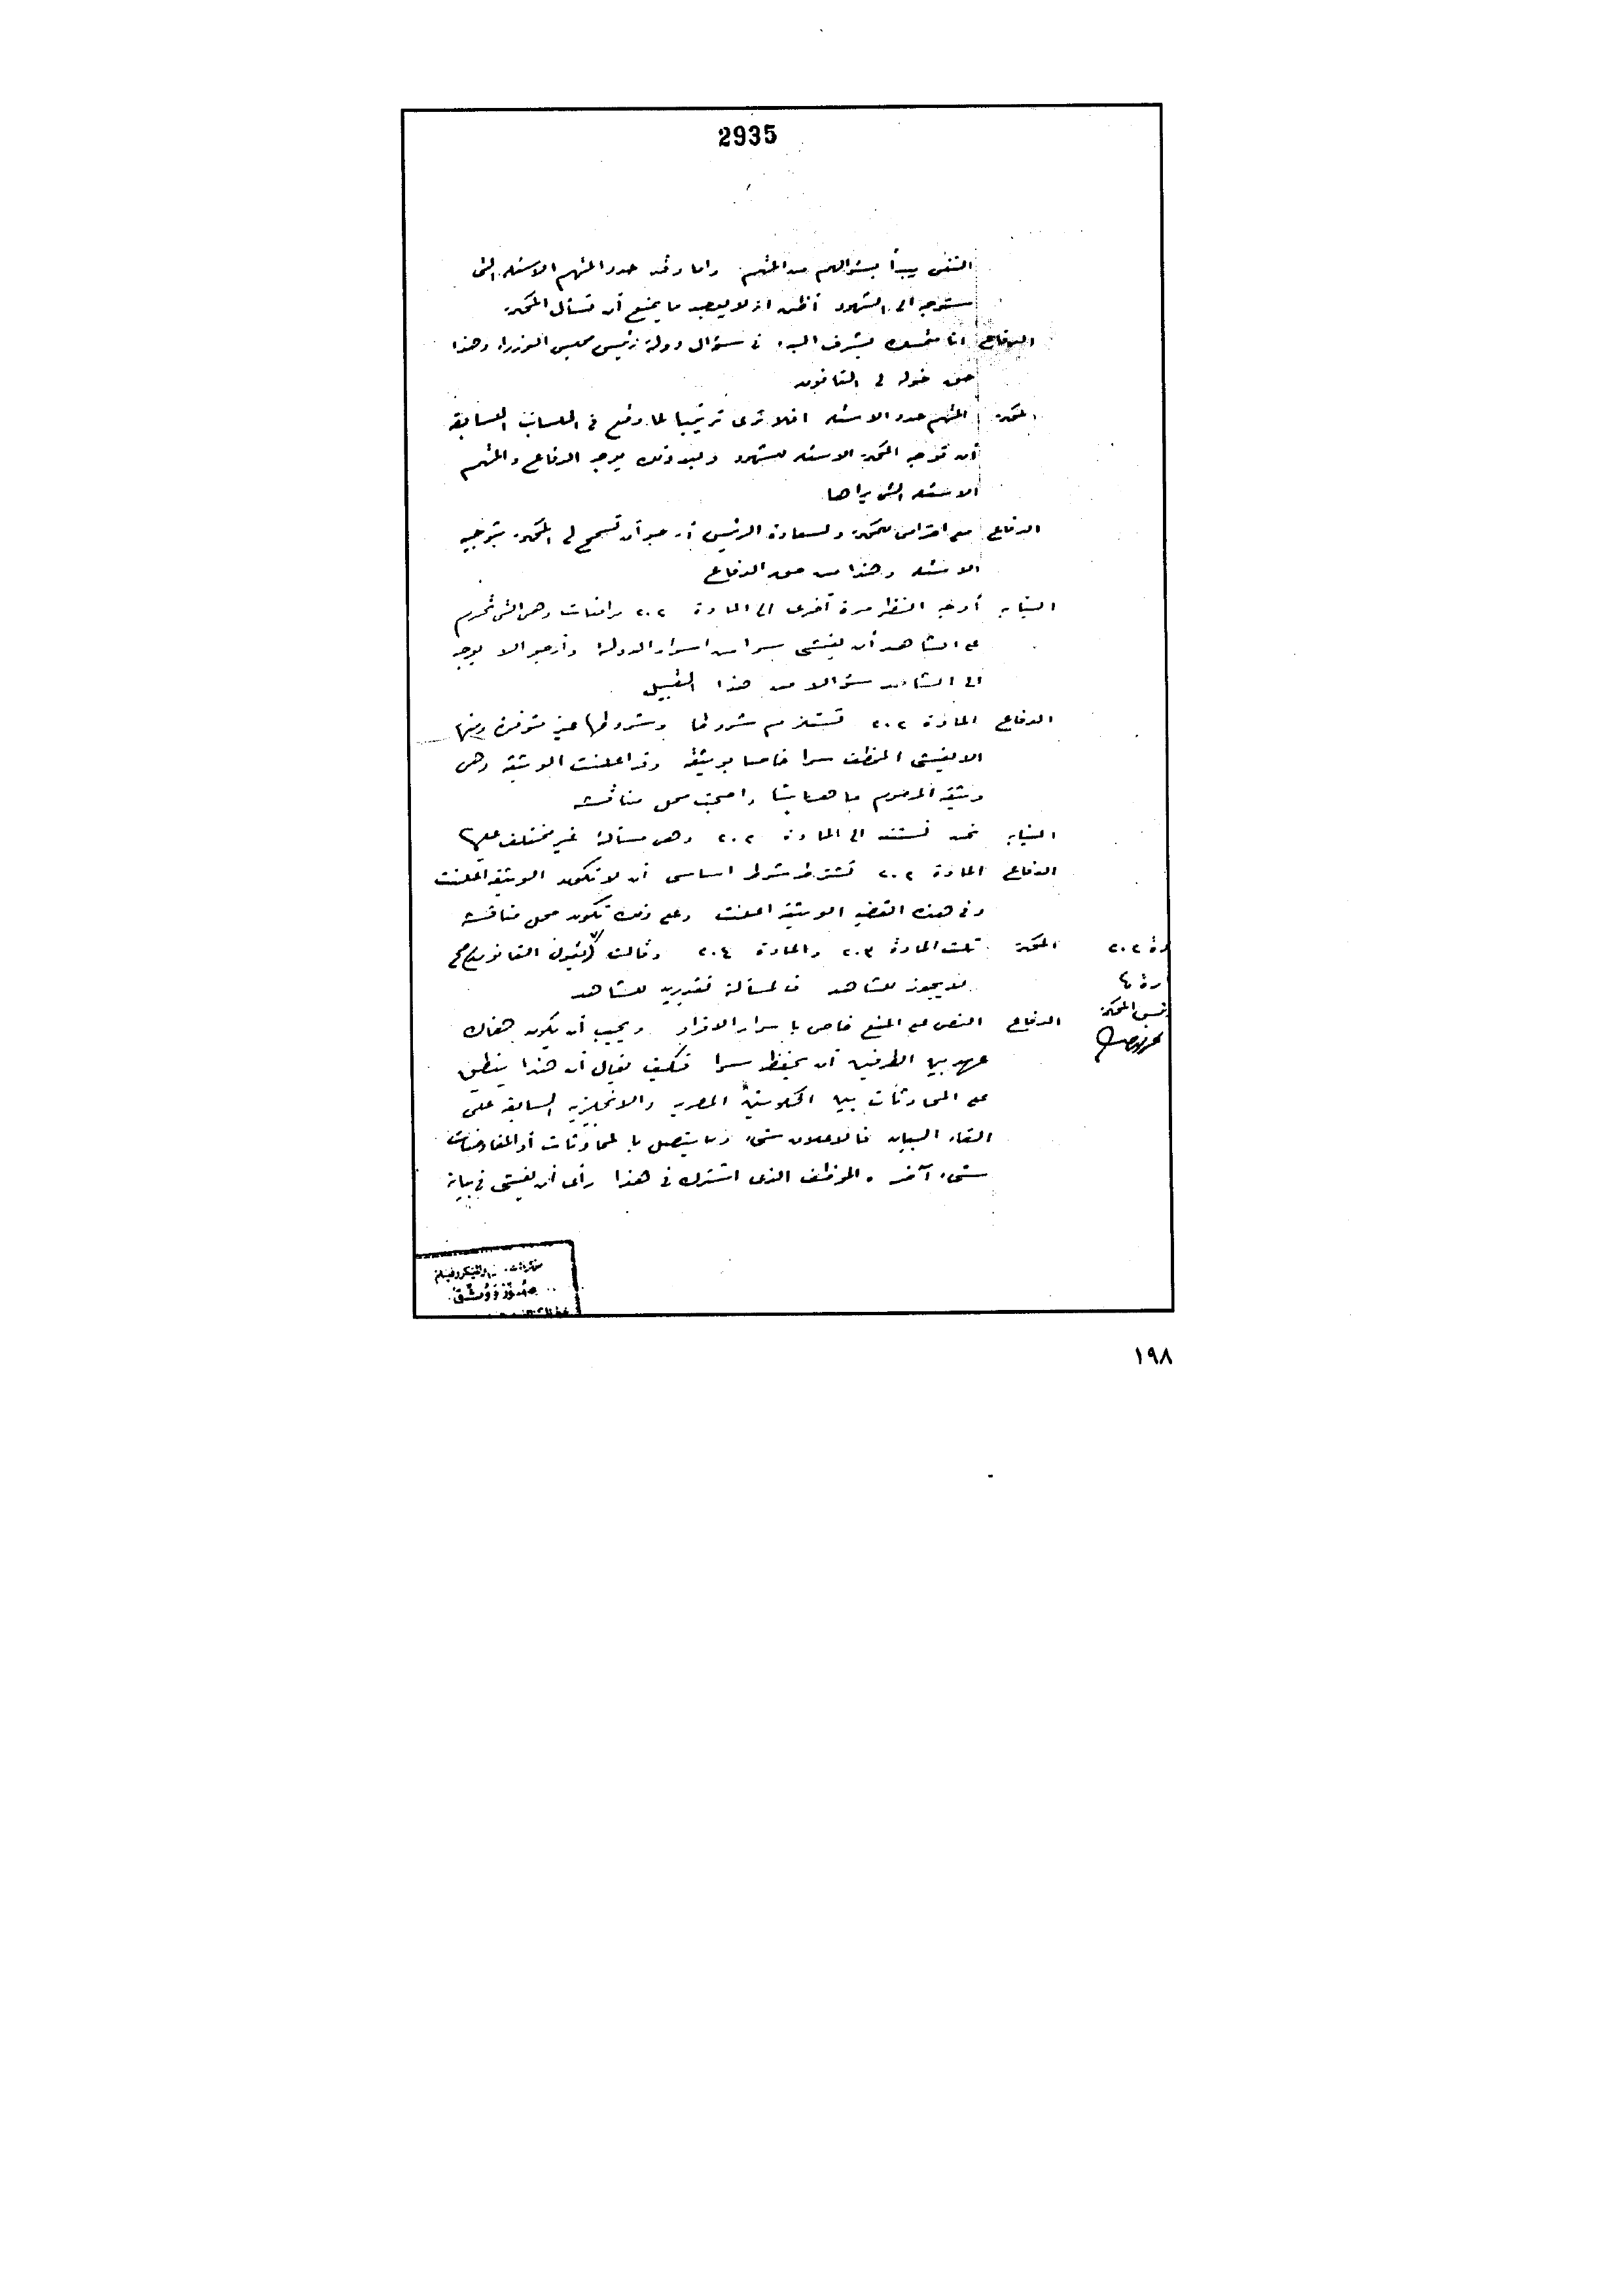 2935
النفى يبدأ بسؤالهم من المتهم واما وقد حدد المتهم الاسئلة التى
ستوجه الى الشهود أظن انه لا يوجد ما يمنع أن تسأل المحكمة
الدفاع انا متمسك بشرف البدء فى سؤال دولة رئيس مجلس الوزراء وهذا
حق خوله لى القانون
المحكمة المتهم حدد الاسئلة افلا ترى ترتيبا لما وقع فى الجلسات السابقة
أن توجه المحكمة الاسئلة للشهود وبعد ذلك يوجه الدفاع والمتهم
الاسئلة التى يراها
الدفاع مع احترامى للمحكمة ولسعادة الرئيس أرجو أن تسمح لى المحكمة بتوجيه
الاسئلة وهذا من حق الدفاع
النيابة أوجه النظر مرة أخرى الى المادة ٢٠٢ مرافعات وهى التى تحرم
على الشاهد أن يفشى سرا من اسرار الدولة وأرجو الا يوجه
الى الشاهد سؤالا من هذا القبيل
الدفاع المادة ٢٠٢ تستلزم شروطا وشروطها غير متوفرة ومنها
الا يفشى الموظف سرا خاصا بوثيقة وقد اعلنت الوثيقة وهى
وثيقة المرحوم ماهر باشا واصبحت محل مناقشة
النيابة نحن نستند الى المادة ٢٠٢ وهى مسألة غير مختلف عليها
الدفاع المادة ٢٠٢ تشترط شرط اساسى أن لا تكون الوثيقة اعلنت
وفى هذه القضية الوثيقة اعلنت وعلى ذلك تكون محل مناقشة
المحكمة تلت المادة ٢٠٣ والمادة ٢٠٤ وقالت يقول القانون
فلا يجوز للشاهد فالمسألة تقديرية للشاهد
الدفاع النص على المنع خاص باسرار الافراد ويجب أن يكون هناك
عهد بين الطرفين أن يحفظ سرا فكيف يقال أن هذا ينطبق
على المحادثات بين الحكومتين المصرية والانجليزية السابقة على
القاء البيان فالاعلان شىء وما يتصل بالمحادثات أو المفاوضات
شىء آخر والموظف الذى اشترك فى هذا رأى أن يفشى فى بيانه
دة ٢٠٢
ادة ٤
رئيس المحكمة
والميكروفيلم
١٩٨